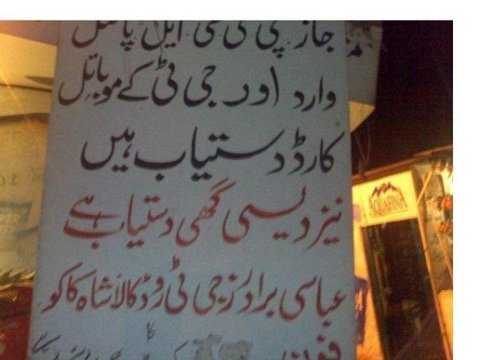 جاز پی ٹی سی ایل پاسل
وارد اور جی ٹی کے موبائل
کارڈ دستیاب ہیں
نیز دیسی گھی دستیاب ہے
عباسی برادرز جی ٹی روڈ کالا شاہ کاکو
AQUAFINA